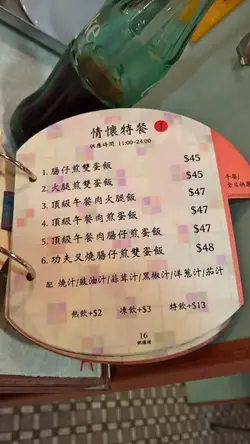 情懷特餐 1
供應時間 11:00-24:00
1. 腸仔煎雙蛋飯 $45
2. 火腿煎雙蛋飯 $45
3. 頂級午餐肉火腿飯 $47
4. 頂級午餐肉煎蛋飯 $47
5. 頂級午餐肉腸仔煎蛋飯 $47
6. 功夫叉燒腸仔煎雙蛋飯 $48
配 燒汁/豉油汁/蒜茸汁/黑椒汁/洋蔥汁/茄汁
熱飲+$2 凍飲+$3 特飲+$13
16
午餐/
全日供應